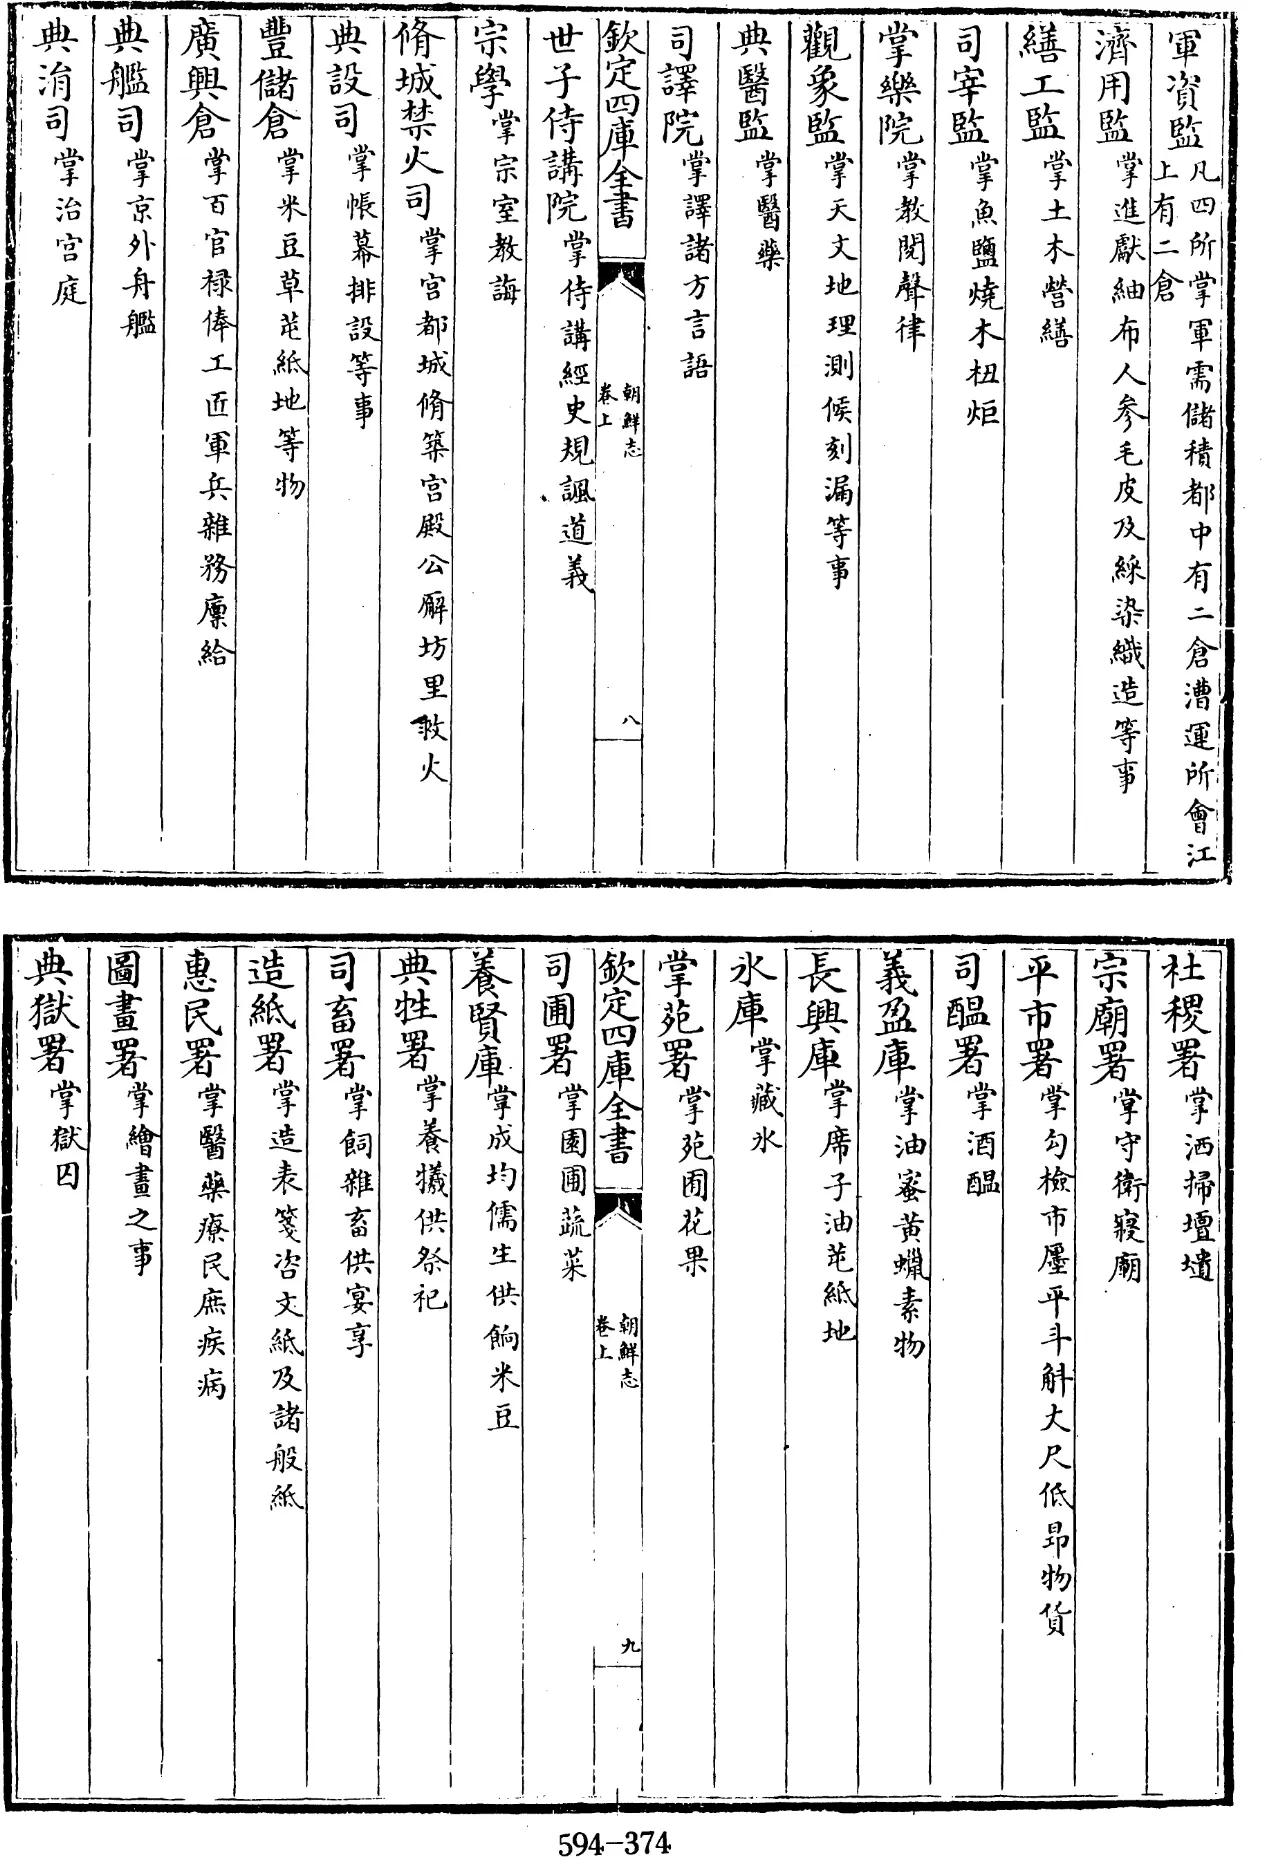 軍資監凡四所掌軍需儲積都中有二倉漕運所會江
上有二倉
濟用監掌進獻紬布人參毛皮及綵染織造等事
繕工監掌土木營繕
司宰監掌魚鹽燒木杻炬
掌樂院掌教閱聲律
觀象監掌天文地理測候刻漏等事
典醫監掌醫藥
司譯院掌譯諸方言語
欽定四庫全書
朝鮮志
卷上
八
世子侍講院掌侍講經史規諷道義
宗學掌宗室教誨
脩城禁火司掌宮都城脩築宮殿公廨坊里救火
典設司掌帳幕排設等事
豐儲倉掌米豆草芚紙地等物
廣興倉掌百官祿俸工匠軍兵雜務廩給
典艦司掌京外舟艦
典涓司掌治宮庭
社稷署掌洒掃壇壝
宗廟署掌守衛寢廟
平市署掌勾檢市廛平斗斛丈尺低昻物貨
司醞署掌酒醞
義盈庫掌油蜜黃蠟素物
長興庫掌席子油芚紙地
氷庫掌藏氷
掌苑署掌苑囿花果
欽定四庫全書
朝鮮志
卷上
九
司圃署掌園圃蔬菜
養賢庫掌成均儒生供餉米豆
典牲署掌養犧供祭祀
司畜署掌飼雜畜供宴享
造紙署掌造表箋咨文紙及諸般紙
惠民署掌醫藥療民庶疾病
圖畫署掌繪畫之事
典獄署掌獄囚
594-374